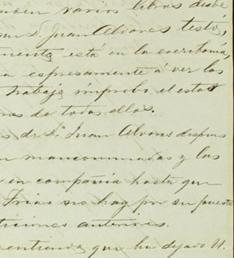 varios libros desde
Juan Alvares testó,
está en la escribania,
espresamente á ver los
trabajo improbo el estar
de todas ellas.
de Dn. Juan Alvares despues
mancomunadas y los
en compañia hasta que
Frias no hay por supuesto
anteriores.
que ha dejado U.